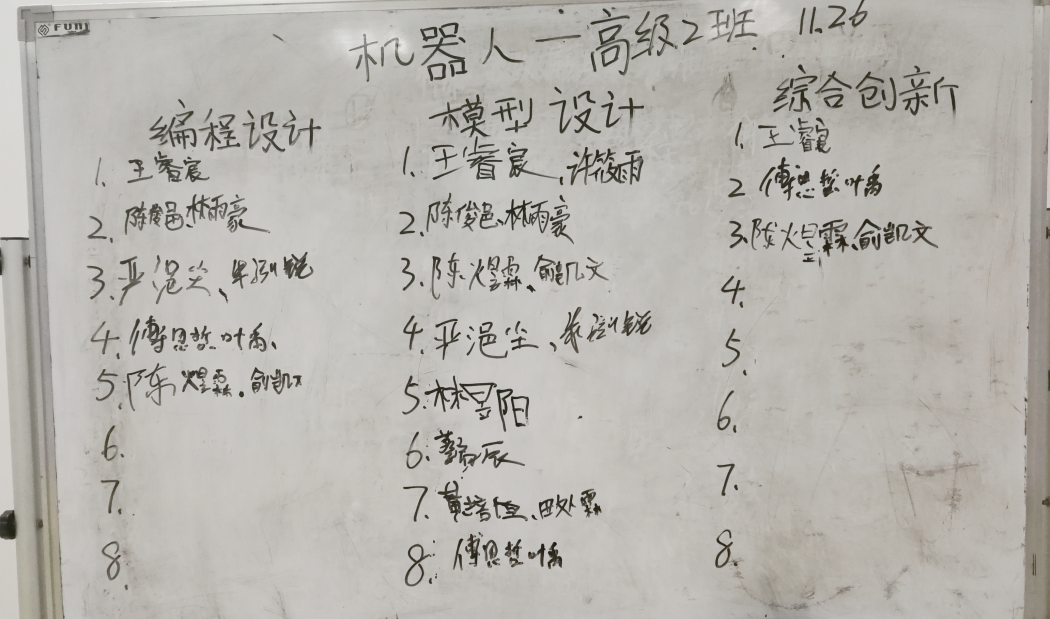 FUNJ
机器人一高级2班 11.26
编程设计
1. 王睿宸
2. 陈俊邑、林雨豪
3. 严浥尘、朱泓锐
4. 傅思哲 叶禹、
5. 陈煜霖. 俞凯文
6.
7.
8.
模型设计
1. 王睿宸、许筱雨
2. 陈俊邑、林雨豪
3. 陈煜霖、俞凯文
4. 严浥尘、朱泓锐
5. 林昱阳
6. 辰
7. 黄
8. 傅思哲 叶禹
综合创新
1. 王睿宸
2 傅思哲 叶禹
3. 陈煜霖、俞凯文
4.
5.
6.
7.
8.